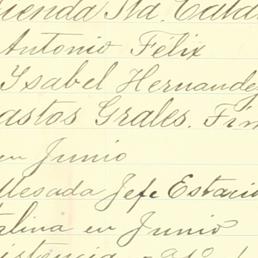 cienda Sta. Catal
Antonio Félix
Ysabel Hernandez
astos Grales. Fin
en Junio
Mesada Jefe Estacio
talina en Junio
istencia